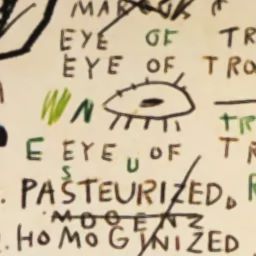 EYE OF TR
EYE OF TRO
N
TR
E EYE OF TR
S U
PASTEURIZED,
MOGENZ
HOMOGINIZED